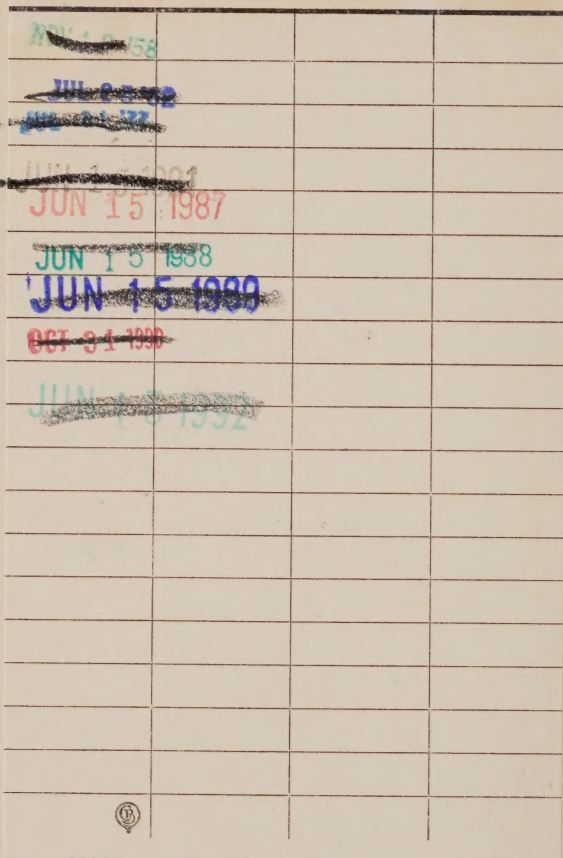 NOV '58
JUL
'77
JUN 15
JUN 15 1987
JUN 15 1988
JUN 15 1989
OCT 31 1990
JUN 15 1992